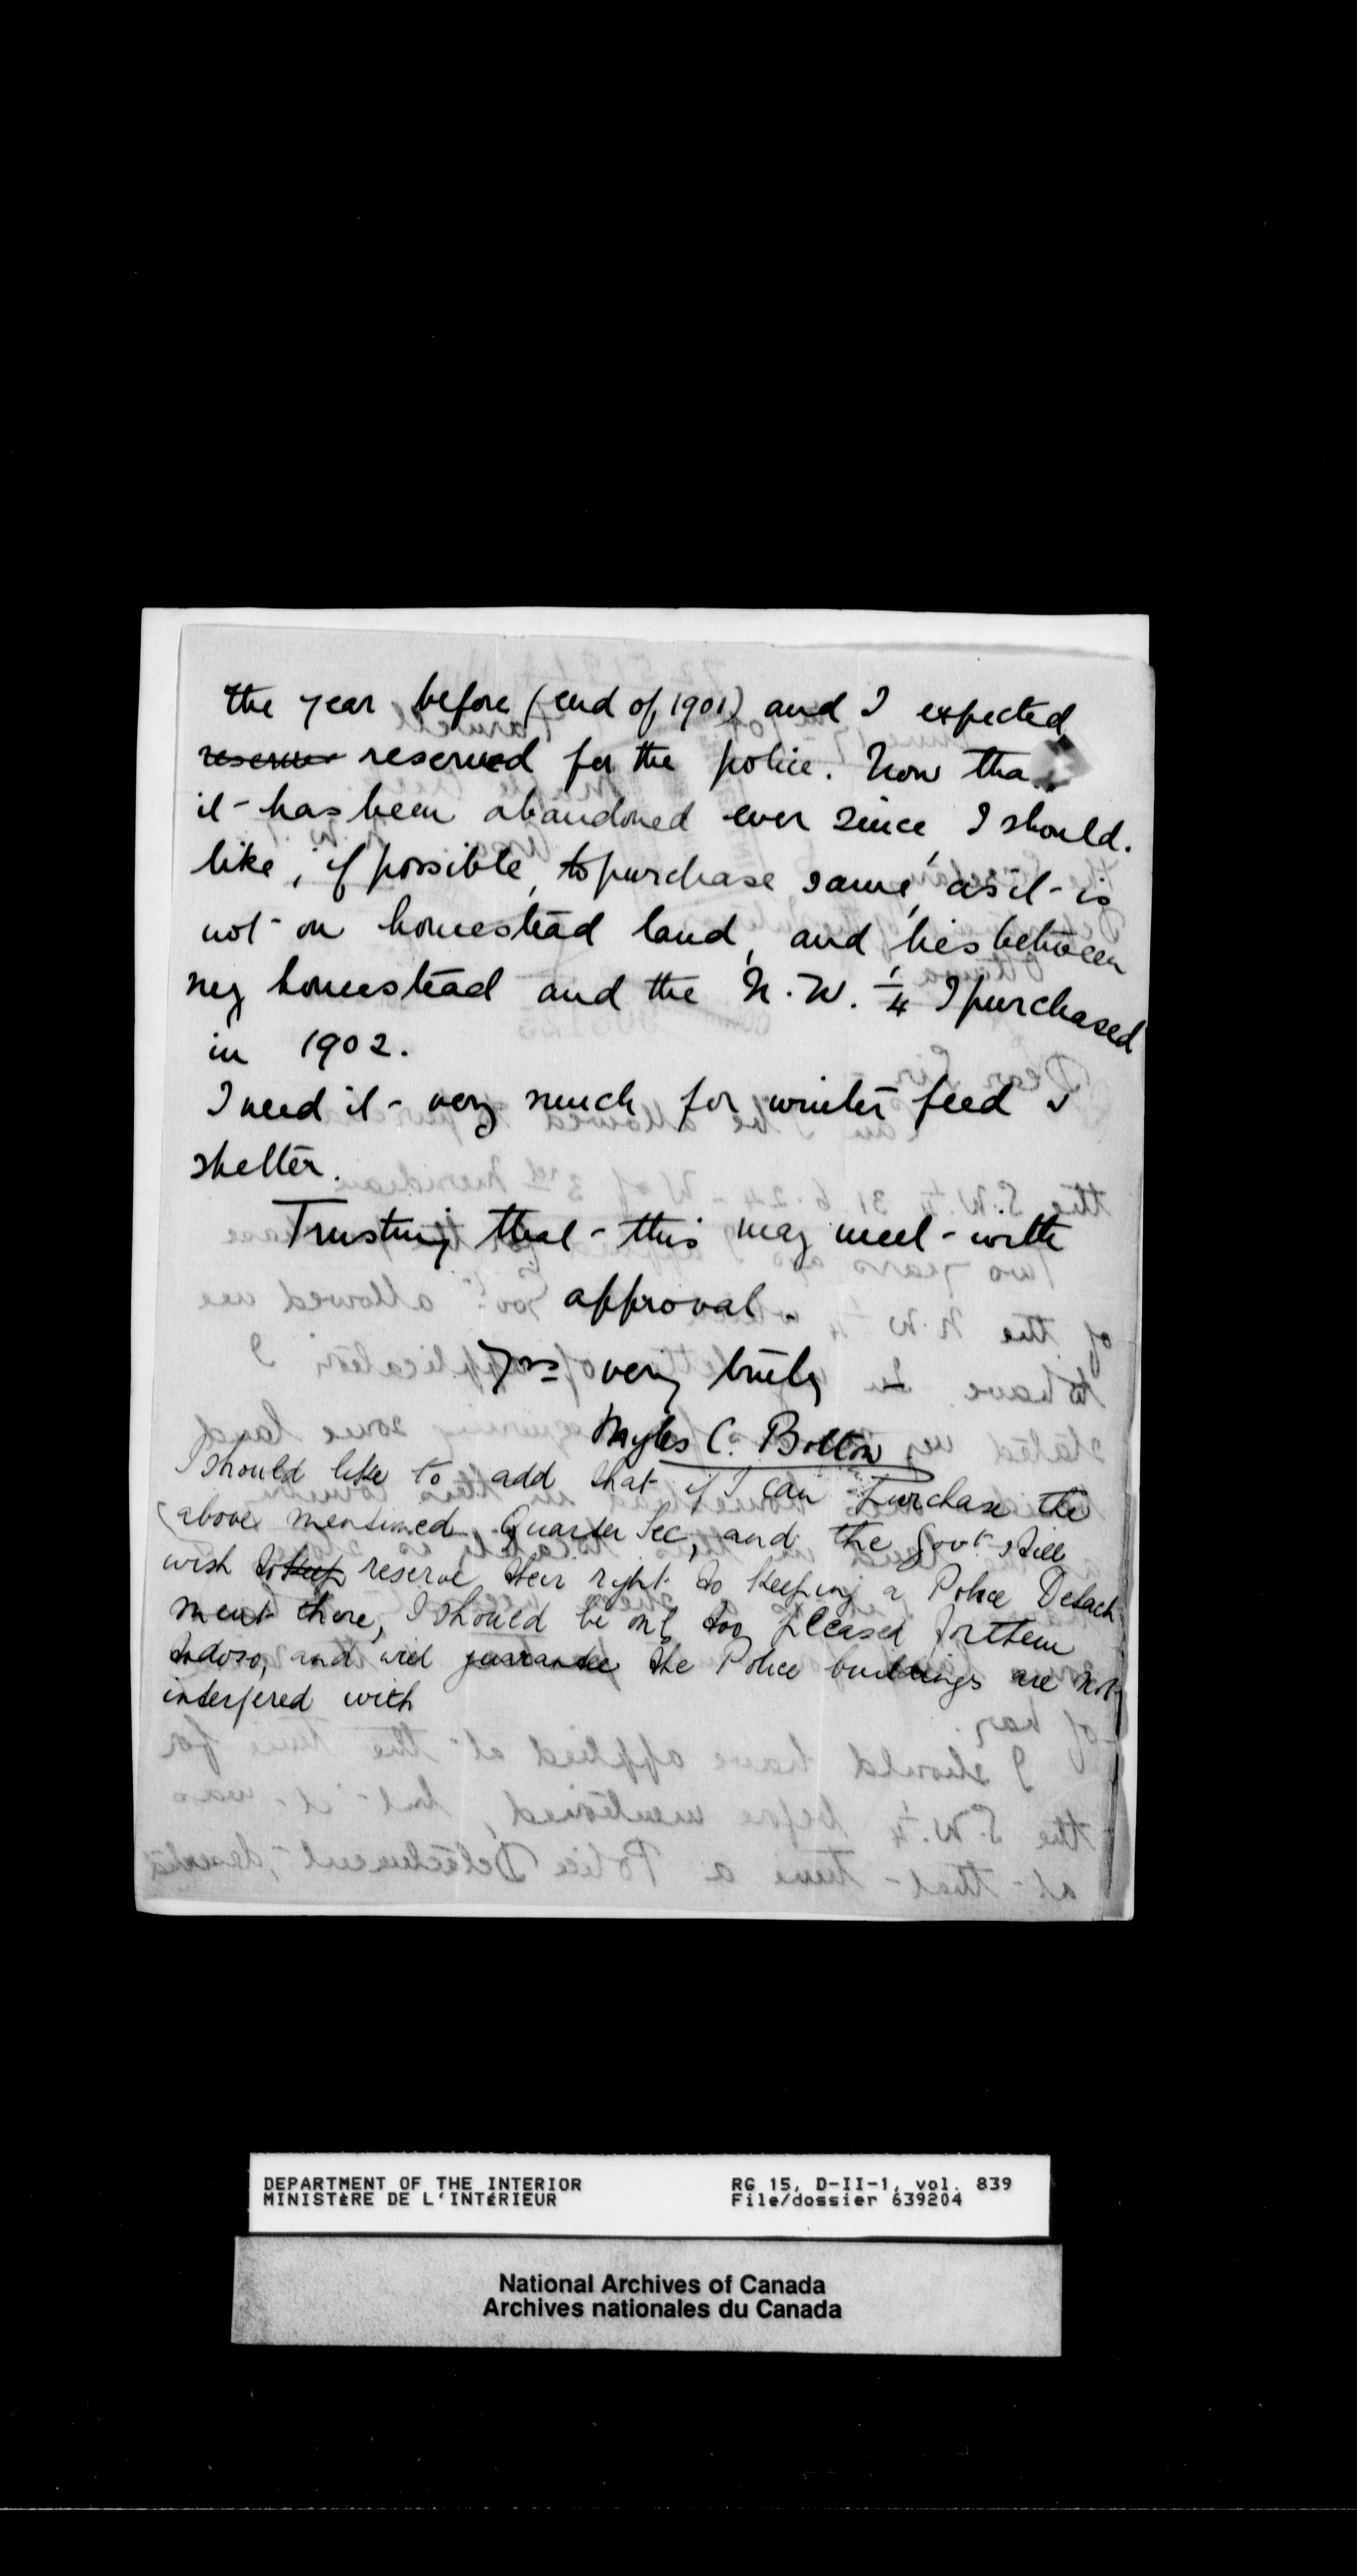 the year before (end of 1901) and I expected
reserver reserved for the police. Now tha
it has been abandoned ever since, I should.
like, if possible, to purchase same, as it is
not on homestead land, and lies between
my homestead and the N.W. 1/4 I purchased
in 1902.
I need it very much for winter feed &
shelter.
Trusting that this may meet with
approval.
Yrs very truly
Myles C. Bolton
I should like to add that if I can purchase the
above mentioned Quarter Sec, and the Govt still
wish to keep reserve their right to keeping a Police Detach
ment there, I should be only too pleased for them
to do so, and will guarantee the Police buildings are not
interfered with
DEPARTMENT OF THE INTERIOR
MINISTÈRE DE L'INTÉRIEUR
RG 15, D-II-1, vol. 839
File/dossier 639204
National Archives of Canada
Archives nationales du Canada